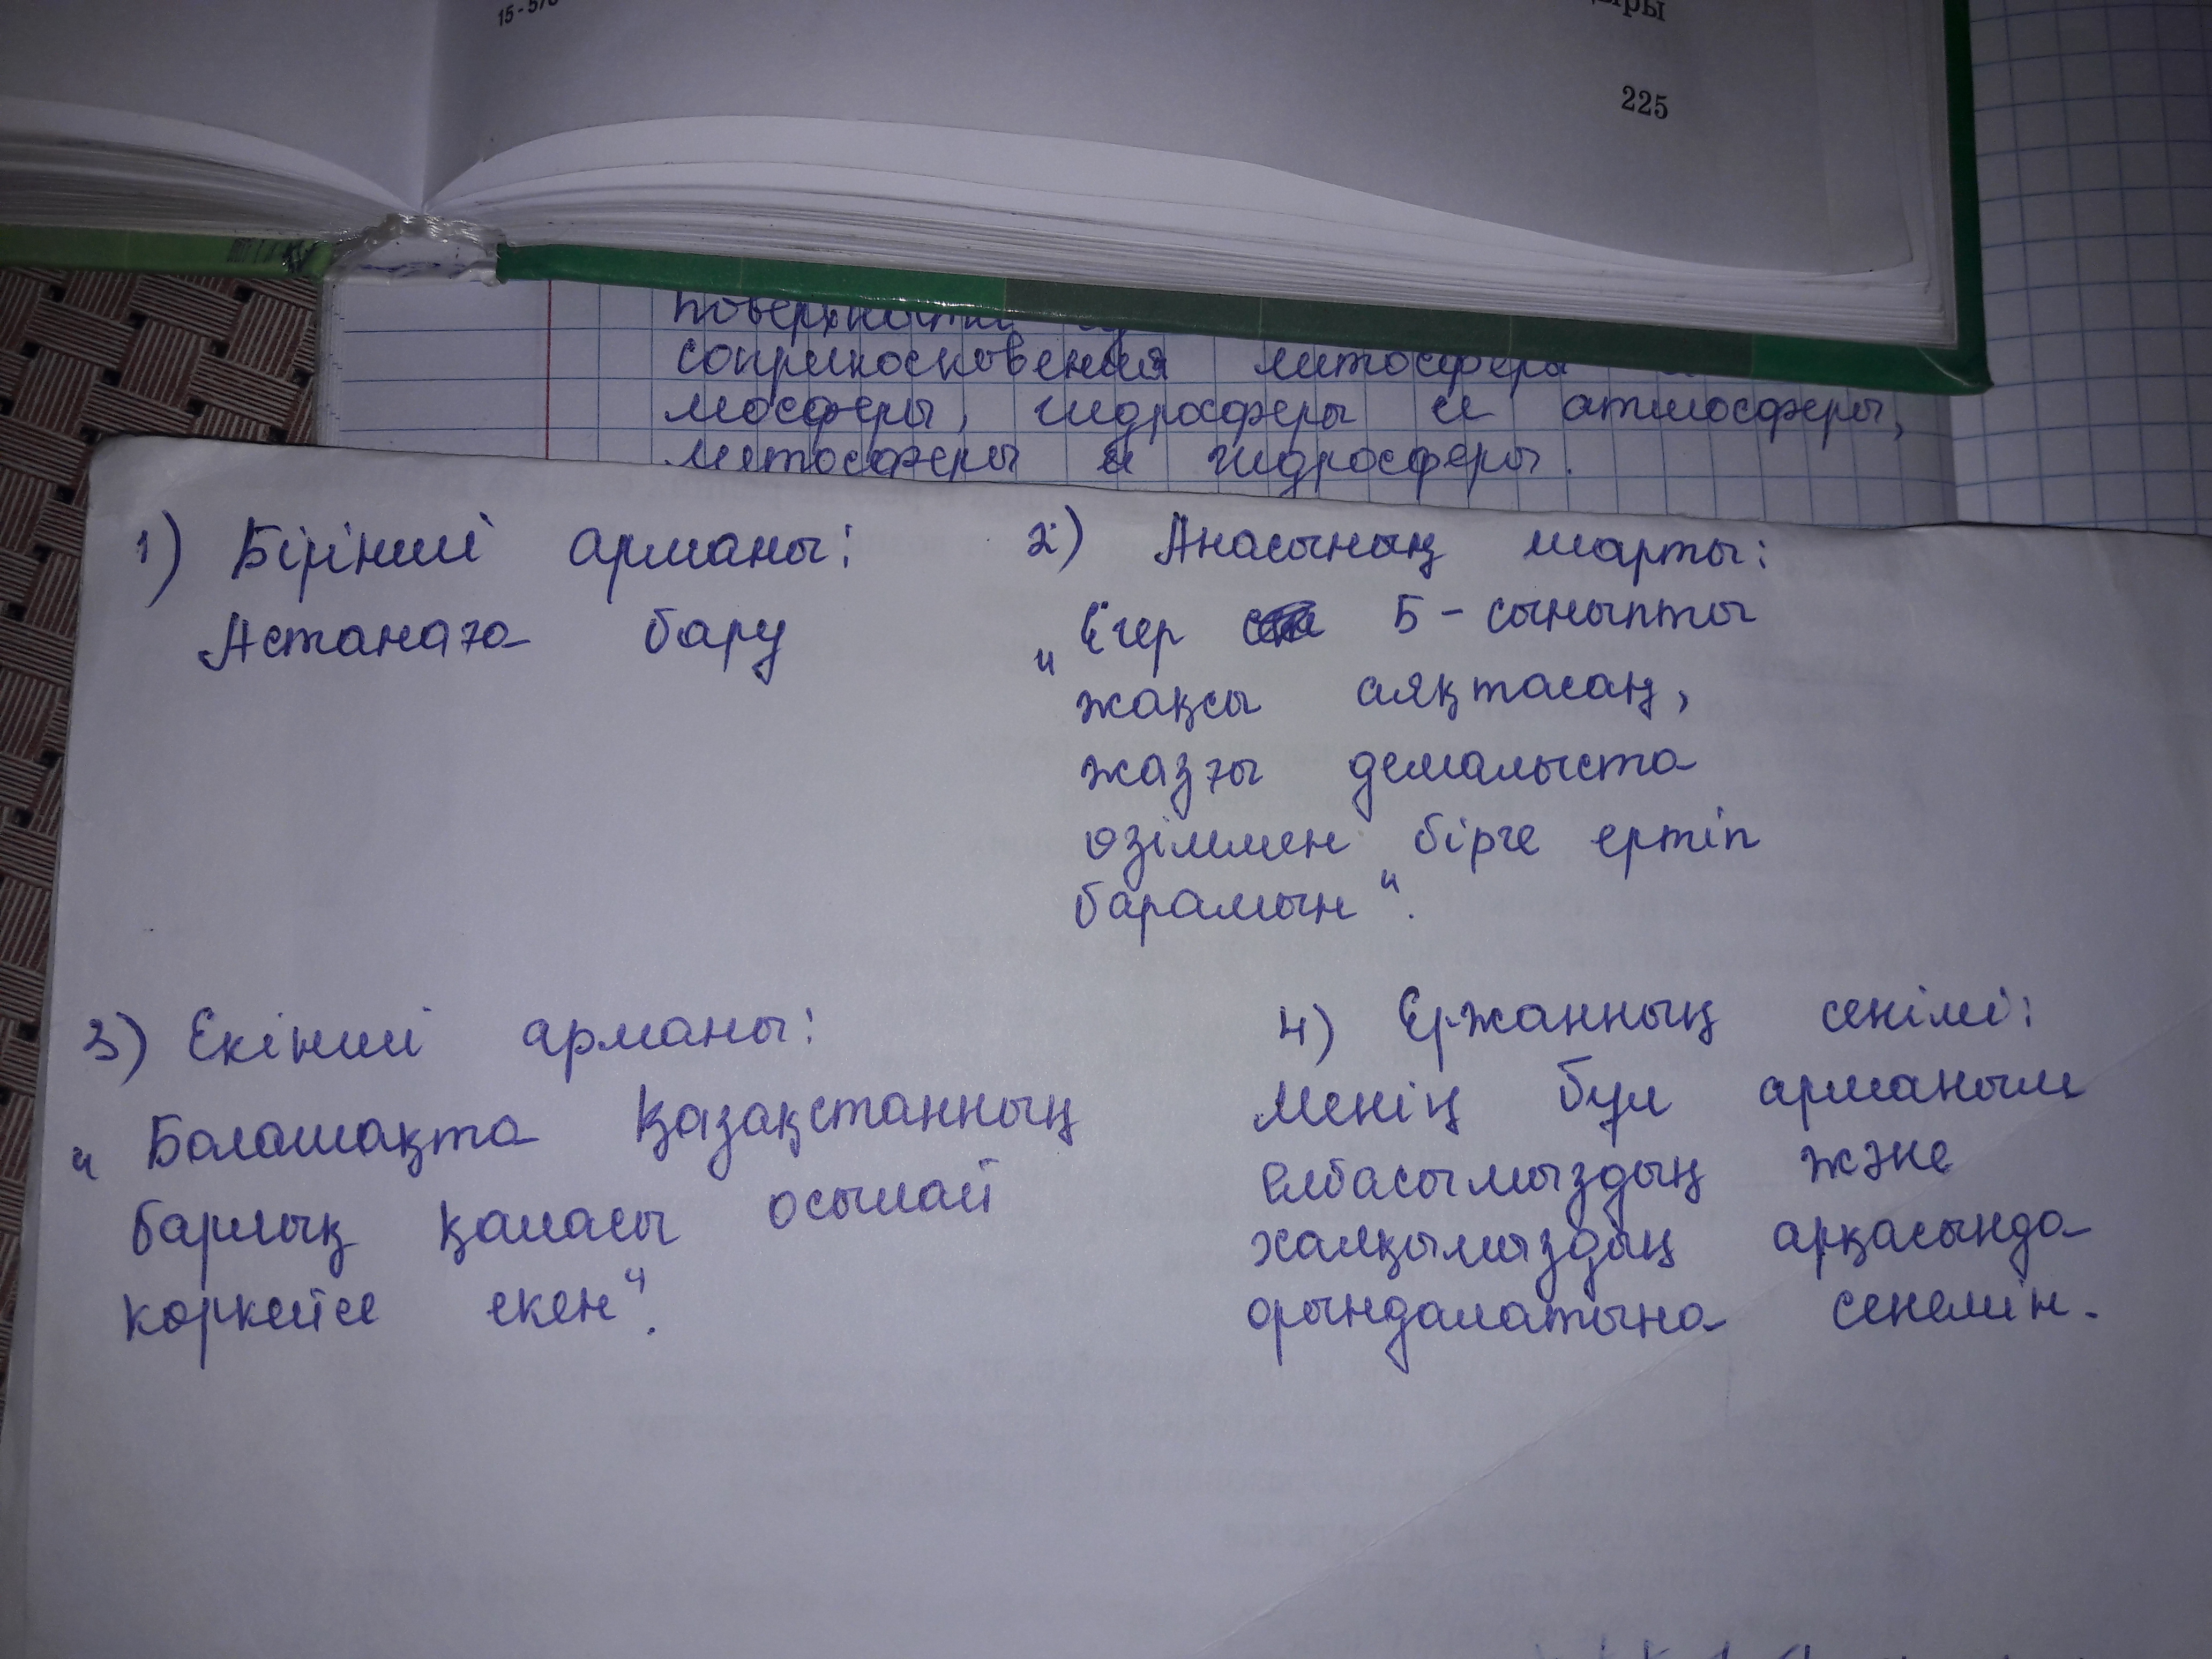 225
соприкосновения литосферы
мосферы, гидросферы и атмосферы,
литосферы и гидросферы.
1) Бірінші арманы:
Астанаға бару
2) Анасының шарты:
„Егер 5-сыныпты
жақсы аяқтасаң,
жазғы демалыста
өзіммен бірге ертіп
барамын".
3) Екінші арманы:
„Болашақта Қазақстанның
барлық қаласы осылай
көркейсе екен".
4) Ержанның сенімі:
Менің бұл арманым
Елбасымыздың және
халқымыздың арқасында
орындалатына сенемін.